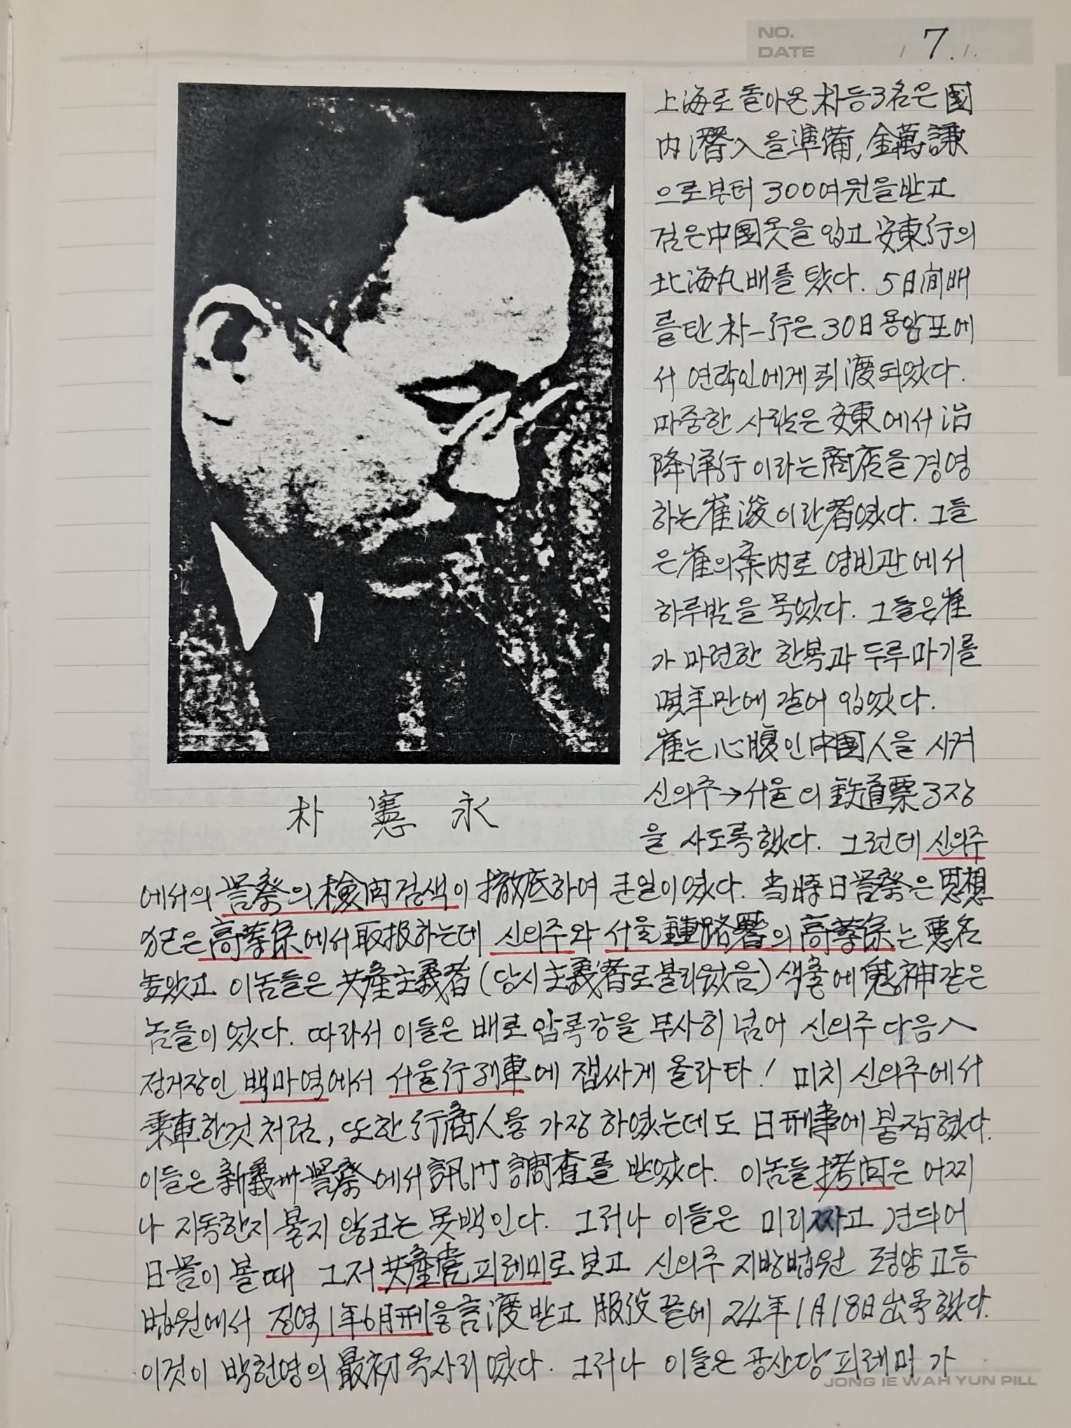 NO.
DATE / 7. / .
上海로 돌아온 朴등 3名은 國
內 潛入을 準備, 金萬謙
으로부터 300여원을 받고
검은 中國옷을 입고 安東行의
北海丸 배를 탔다. 5日間 배
를 탄 朴一行은 30日 용암포에
서 연락인에게 引渡되었다.
마중한 사람은 安東에서 治
降洋行이라는 商店을 경영
하는 崔浚이란 者였다. 그들
은 崔의 案內로 영빈관에서
하루밤을 묵었다. 그들은 崔
가 마련한 한복과 두루마기를
몇年만에 갈어 입었다.
崔는 心腹인 中國人을 시켜
신의주→서울의 鉄道票 3장
을 사도록 했다. 그런데 신의주
朴 憲 永
에서의 警察의 檢問검색이 撤底하여 큰일이었다. 当時 日警察은 思想
범은 高等係에서 取扱하는데 신의주와 서울 鍾路署의 高等係는 悪名
높았고 이놈들은 共產主義者(당시 主義者로 불리웠음) 색출에 鬼神같은
놈들이었다. 따라서 이들은 배로 압록강을 무사히 넘어 신의주 다음
정거장인 백마역에서 서울行 列車에 잽싸게 올라타! 미치 신의주에서
乘車한것 처럼, 또한 行商人을 가장 하였는데도 日刑事에 붙잡혔다.
이들은 新義州警察에서 訊問 調査를 받았다. 이놈들 拷問은 어찌
나 지독한지 불지 않고는 못백인다. 그러나 이들은 미리 짜고 견듸어
日警이 볼때 그저 共產党 피레미로 보고 신의주 지방법원 평양 고등
법원에서 징역 1年6月刑을 言渡받고 服役 끝에 24年 1月 18日 出獄했다.
이것이 박헌영의 最初 옥사리였다. 그러나 이들은 공산당 피레미가
JONG IE WAH YUN PILL